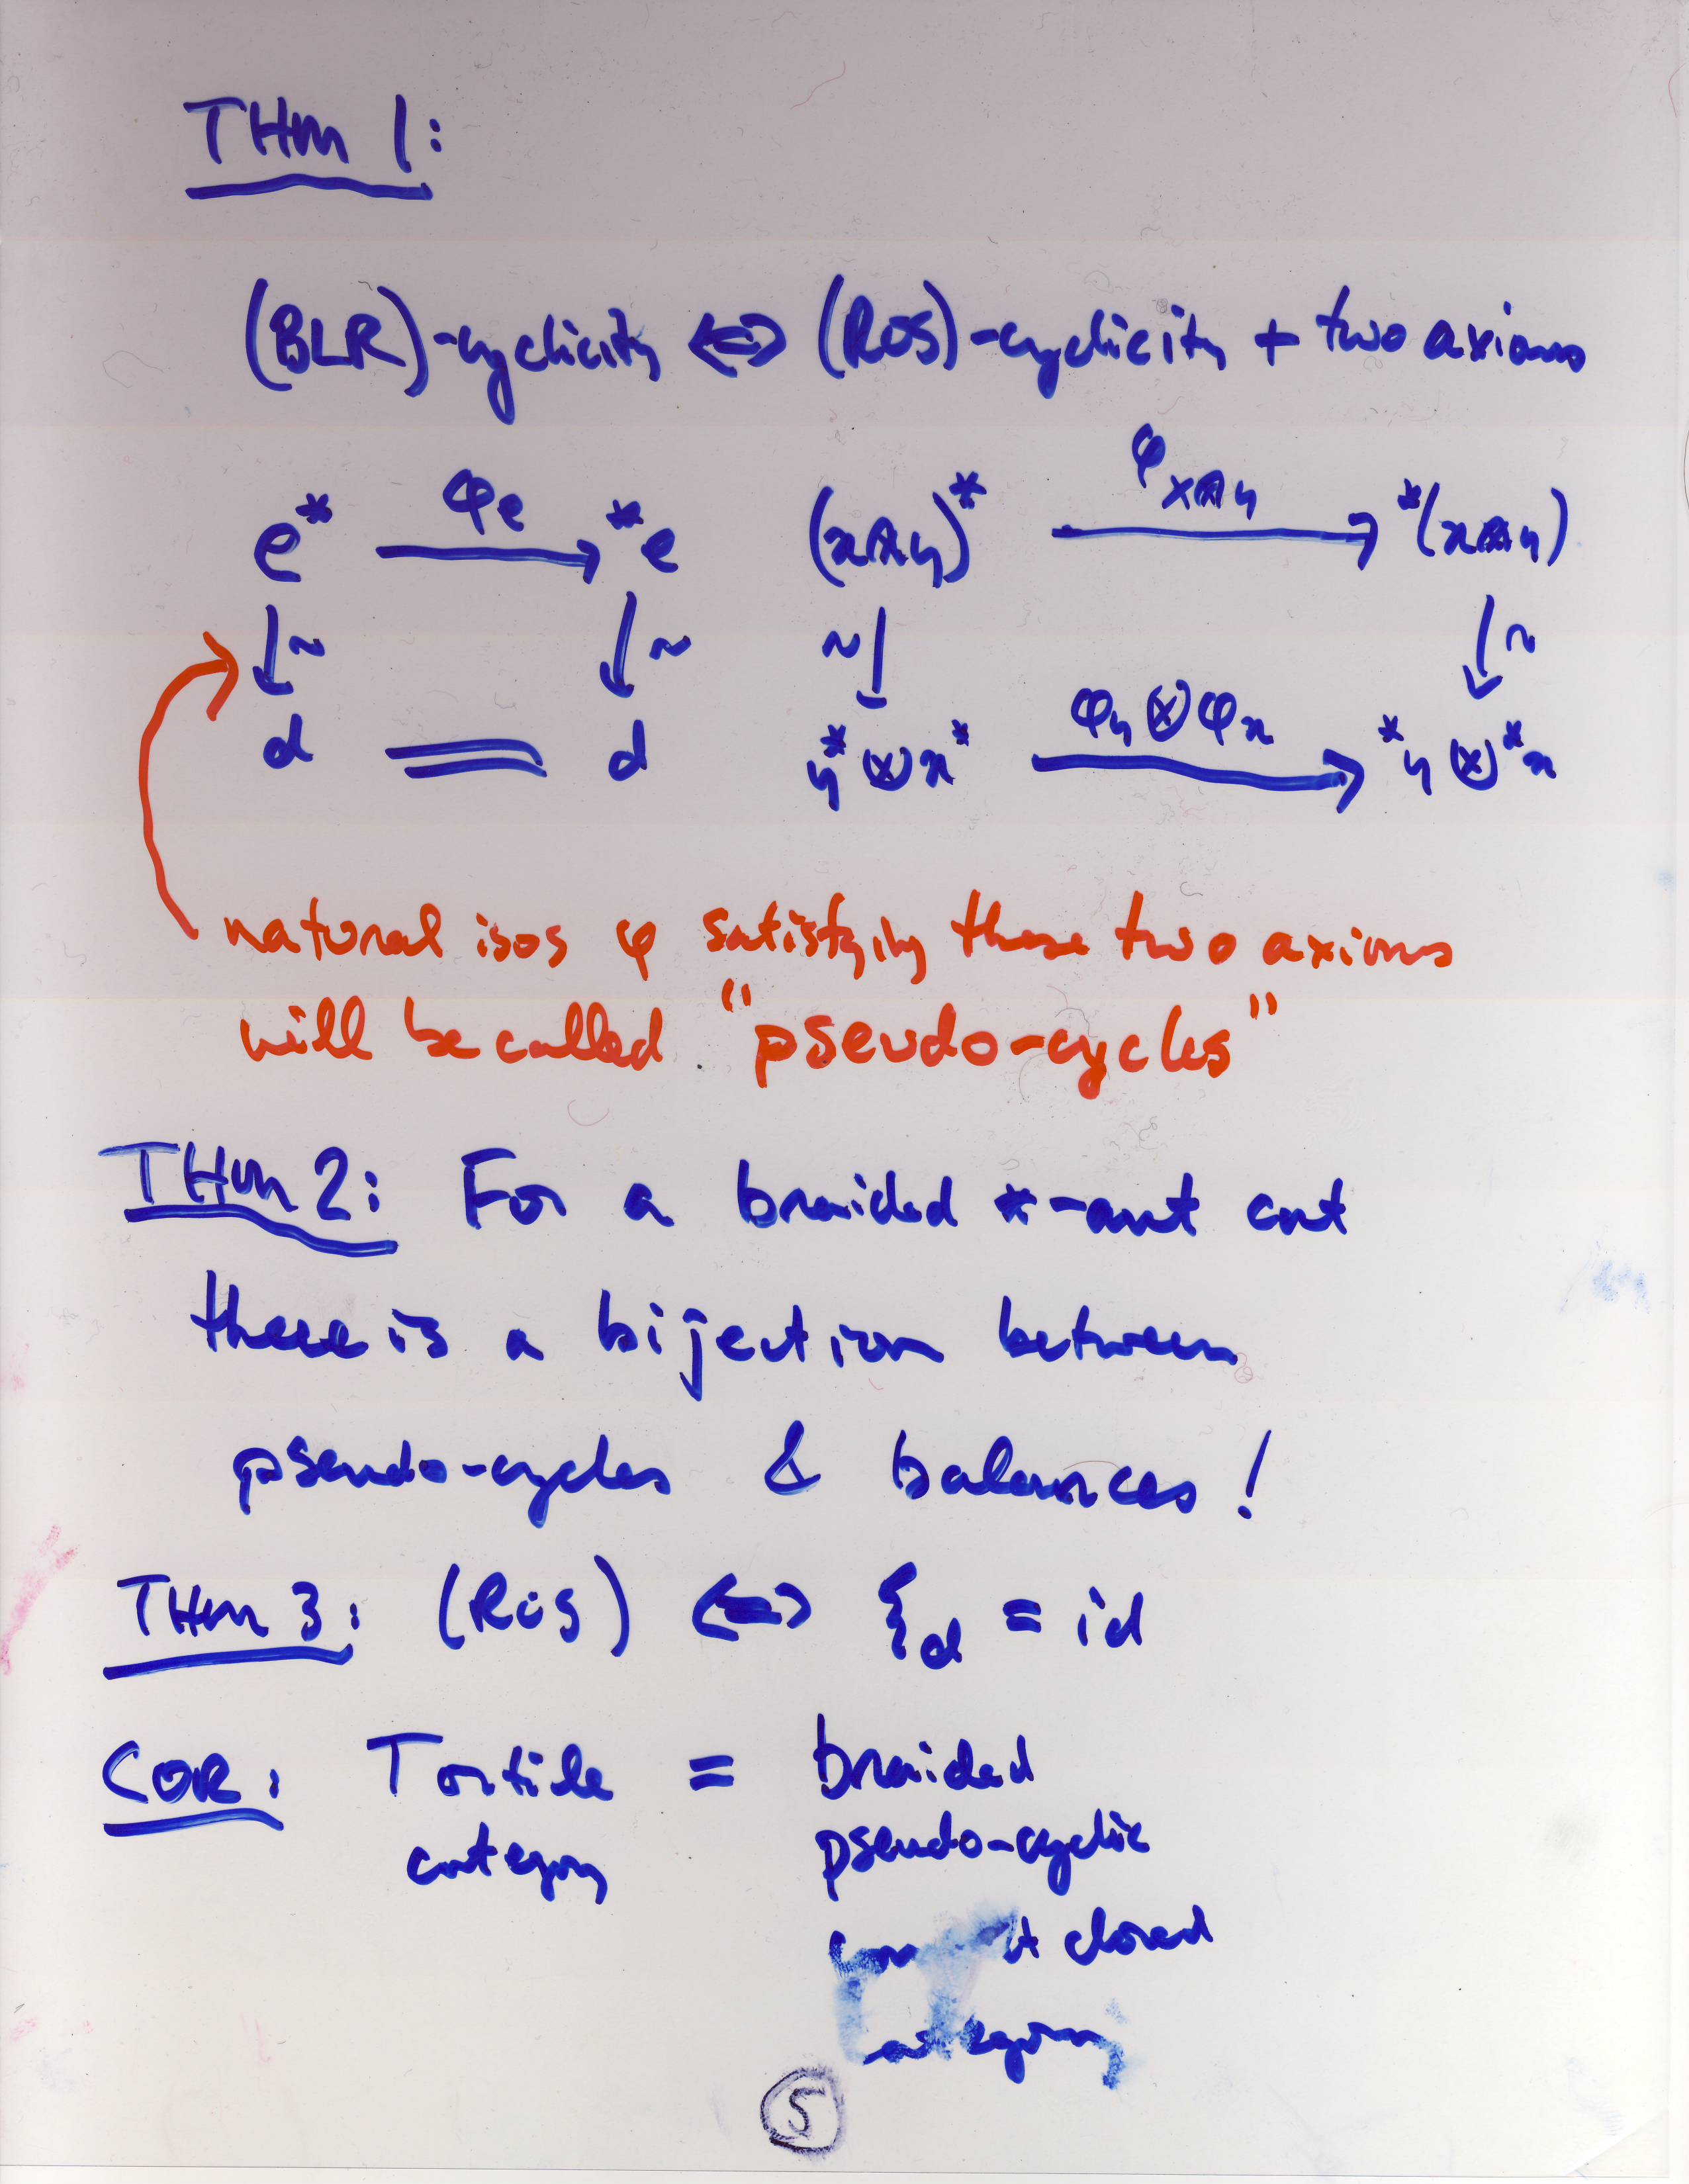 THM 1:
(BLR)-cyclicity ⇔ (ROS)-cyclicity + two axioms
φₑ φ
e* → *e (x⅋y)* → *(x⅋y)
↓~ ↓~ ~↓ ↓~
φy ⊗ φx
d = d y* ⊗ x* → *y ⊗ *x
natural isos φ satisfying these two axioms
will be called "pseudo-cycles"
THM 2: For a braided *-aut cat
there is a bijection between
pseudo-cycles & balances!
THM 3: (ROS) ⇔ ξ_d = id
COR: Tortile = braided
category pseudo-cyclic
closed
category
5